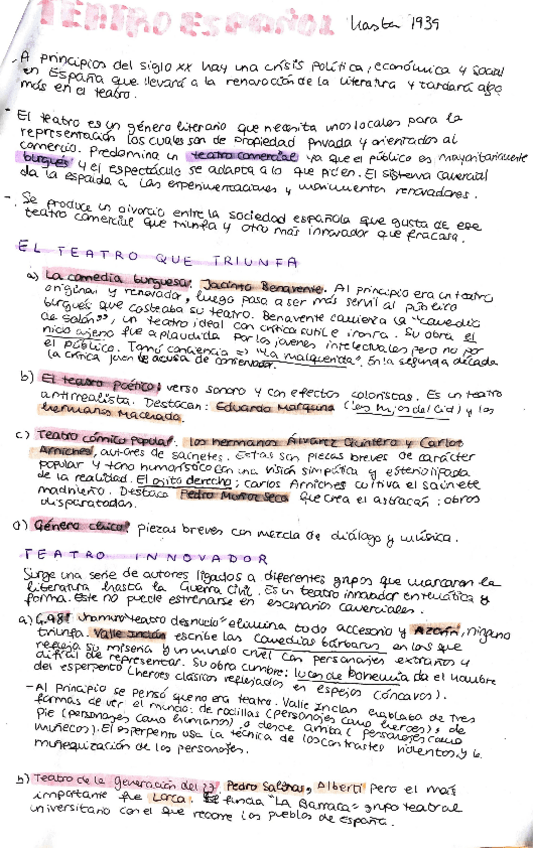 TEATRO ESPAÑOL hasta 1939
- A principios del siglo XX hay una crisis política, económica y social
en España que llevará a la renovación de la literatura y tardará algo
más en el teatro.
- El teatro es un género literario que necesita unos locales para la
representación los cuales son de propiedad privada y orientados al
comercio. Predomina un teatro comercial ya que el público es mayoritariamente
burgués y el espectáculo se adapta a lo que piden. El sistema comercial
da la espalda a las experimentaciones y movimientos renovadores.
- Se produce un divorcio entre la sociedad española que gusta de ese
teatro comercial que triunfa y otro más innovador que fracasa.
EL TEATRO QUE TRIUNFA
a) La comedia burguesa: Jacinto Benavente. Al principio era un teatro
original y renovador, luego pasa a ser más servil al público
burgués que costeaba su teatro. Benavente comienza la "comedia
de salón", un teatro ideal con crítica sutil e ironía. Su obra el
nido ajeno fue aplaudida por los jóvenes intelectuales pero no por
el público. Tomó conciencia => "La malquerida". En la segunda década
la crítica joven le acusa de conservador.
b) El teatro poético: verso sonoro y con efectos coloristas. Es un teatro
antirrealista. Destacan: Eduardo Marquina (Las hijas del Cid) y los
hermanos Machado.
c) Teatro cómico popular: los hermanos Álvarez Quintero y Carlos
Arniches, autores de sainetes. Estas son piezas breves de carácter
popular y tono humorístico con una visión simpática y estereotipada
de la realidad. El ojito derecho; Carlos Arniches cultiva el sainete
madrileño. Destaca Pedro Muñoz Seca que crea el astracán: obras
disparatadas.
d) Género chico: piezas breves con mezcla de diálogo y música.
TEATRO INNOVADOR
Surge una serie de autores ligados a diferentes grupos que marcaron la
literatura hasta la Guerra Civil. Es un teatro innovador en temática y
forma. Este no puede estrenarse en escenarios comerciales.
a) G.98: Unamuno "teatro desnudo" elimina todo accesorio y Azorín, ninguno
triunfa. Valle Inclán escribe las Comedias bárbaras en las que
refleja su miseria y un mundo cruel con personajes extraños y
difícil de representar. Su obra cumbre: luces de Bohemia da el nombre
del esperpento (heroes clásicos reflejados en espejos cóncavos).
- Al principio se pensó que no era teatro. Valle Inclan hablaba de tres
formas de ver el mundo: de rodillas (personajes como heroes), de
pie (personajes como humanos), o desde arriba (personajes como
muñecos). El esperpento usa la técnica de los contrastes violentos y
muñequización de los personajes.
b) Teatro de la generación del 27: Pedro Salinas, Alberti pero el más
importante fue Lorca. funda "LA Barraca" grupo teatral
universitario con el que recorre los pueblos de España.